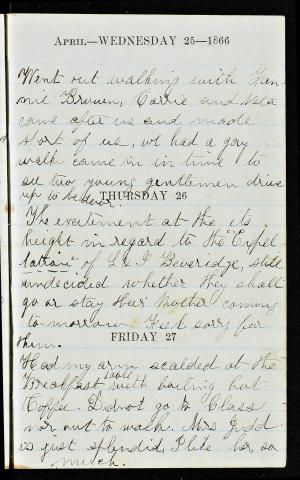 APRIL—WEDNESDAY 25—1866
Went out walking with Fan-
nie Brown, Carrie and
came after us and made
sport of us, we had a gay
walk came in in time to
see two young gentlemen drive
up to the door.
THURSDAY 26
The excitement at the its
height in regard to the "Expel
lation" of L & I Beveridge, still
undecided whether they shall
go or stay their Mother coming
to-morrow. Feel sorry for
them.
FRIDAY 27
Had my arm scalded at the
Breakfast table with boiling hot
Coffee. Did not go to Class
nor out to walk. Mrs Judd
is just splendid, I like her so
much.